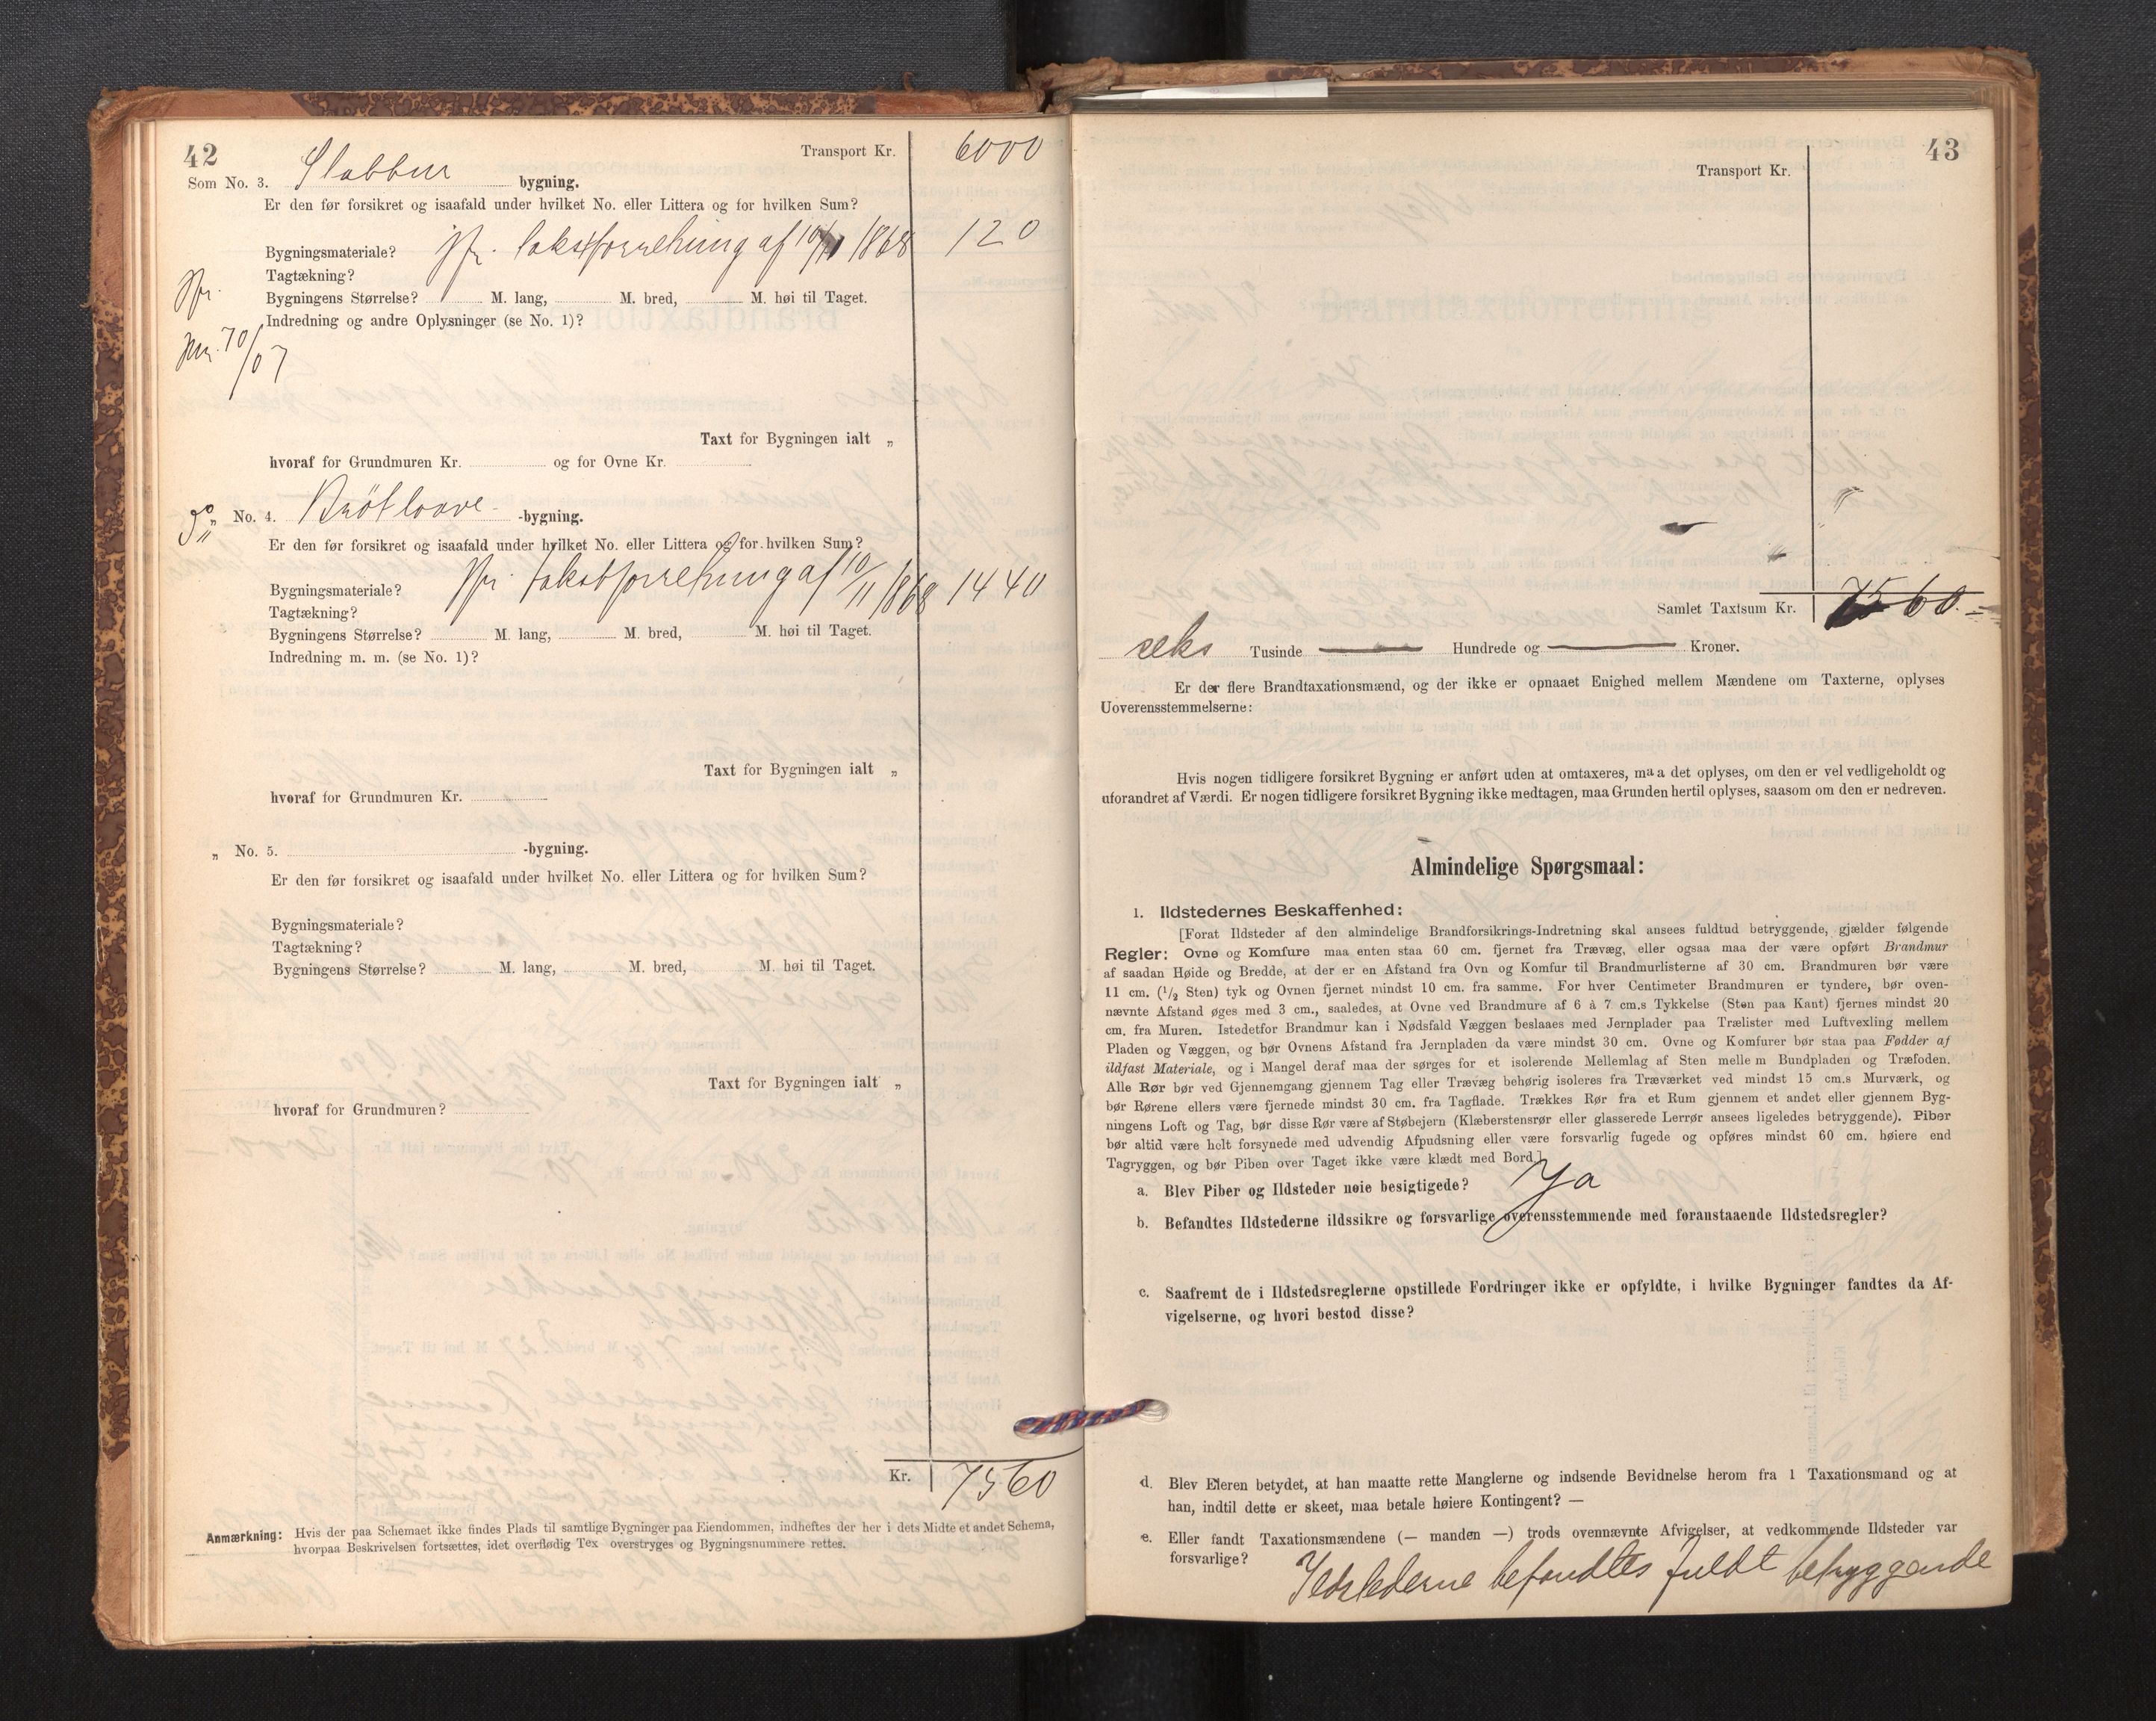 42
Transport Kr. 6000
Som No. 3. Stabbur bygning.
Er den før forsikret og isaafald under hvilket No. eller Littera og for hvilken Sum?
Bygningsmateriale? jfr. takstforretning af 10/11 1868 120
Tagtækning?
jfr.
Bygningens Størrelse? M. lang, M. bred, M. høi til Taget.
Indredning og andre Oplysninger (se No. 1)?
jnr. 70/07
Taxt for Bygningen ialt „
hvoraf for Grundmuren Kr. og for Ovne Kr.
„ No. 4. -bygning.
Er den før forsikret og isaafald under hvilket No. eller Littera og for hvilken Sum?
Bygningsmateriale? jfr. takstforretning af 10/11 1868 1440
Tagtækning?
Bygningens Størrelse? M. lang, M. bred, M. høi til Taget.
Indredning m. m. (se No. 1)?
Taxt for Bygningen ialt „
hvoraf for Grundmuren Kr.
„ No. 5. -bygning.
Er den før forsikret og isaafald under hvilket No. eller Littera og for hvilken Sum?
Bygningsmateriale?
Tagtækning?
Bygningens Størrelse? M. lang, M. bred, M. høi til Taget.
Taxt for Bygningen ialt „
hvoraf for Grundmuren?
Kr. 7560
Anmærkning: Hvis der paa Schemaet ikke findes Plads til samtlige Bygninger paa Eiendommen, indheftes der her i dets Midte et andet Schema,
hvorpaa Beskrivelsen fortsættes, idet overflødig Tex overstryges og Bygningsnummere rettes.
43
Transport Kr.
Samlet Taxtsum Kr. 7560.
seks Tusinde — Hundrede og — Kroner.
Er der flere Brandtaxationsmænd, og der ikke er opnaaet Enighed mellem Mændene om Taxterne, oplyses
Uoverensstemmelserne:
Hvis nogen tidligere forsikret Bygning er anført uden at omtaxeres, maa det oplyses, om den er vel vedligeholdt og
uforandret af Værdi. Er nogen tidligere forsikret Bygning ikke medtagen, maa Grunden hertil oplyses, saasom om den er nedreven.
Almindelige Spørgsmaal:
1. Ildstedernes Beskaffenhed:
[Forat Ildsteder af den almindelige Brandforsikrings-Indretning skal ansees fuldtud betryggende, gjælder følgende
Regler: Ovne og Komfure maa enten staa 60 cm. fjernet fra Trævæg, eller ogsaa maa der være opført Brandmur
af saadan Høide og Bredde, at der er en Afstand fra Ovn og Komfur til Brandmurlisterne af 30 cm. Brandmuren bør være
11 cm. (1/2 Sten) tyk og Ovnen fjernet mindst 10 cm. fra samme. For hver Centimeter Brandmuren er tyndere, bør oven-
nævnte Afstand øges med 3 cm., saaledes, at Ovne ved Brandmure af 6 à 7 cm.s Tykkelse (Sten paa Kant) fjernes mindst 20
cm. fra Muren. Istedetfor Brandmur kan i Nødsfald Væggen beslaaes med Jernplader paa Trælister med Luftvexling mellem
Pladen og Væggen, og bør Ovnens Afstand fra Jernpladen da være mindst 30 cm. Ovne og Komfurer bør staa paa Fødder af
ildfast Materiale, og i Mangel deraf maa der sørges for et isolerende Mellemlag af Sten mellem Bundpladen og Træfoden.
Alle Rør bør ved Gjennemgang gjennem Tag eller Trævæg behørig isoleres fra Træværket ved mindst 15 cm.s Murværk, og
bør Rørene ellers være fjernede mindst 30 cm. fra Tagflade. Trækkes Rør fra et Rum gjennem et andet eller gjennem Byg-
ningens Loft og Tag, bør disse Rør være af Støbejern (Klæberstensrør eller glasserede Lerrør ansees ligeledes betryggende). Piber
bør altid være helt forsynede med udvendig Afpudsning eller være forsvarlig fugede og opføres mindst 60 cm. høiere end
Tagryggen, og bør Piben over Taget ikke være klædt med Bord.]
a. Blev Piber og Ildsteder nøie besigtigede? Ja
b. Befandtes Ildstederne ildssikre og forsvarlige overensstemmende med foranstaaende Ildstedsregler?
c. Saafremt de i Ildstedsreglerne opstillede Fordringer ikke er opfyldte, i hvilke Bygninger fandtes da Af-
vigelserne, og hvori bestod disse?
d. Blev Eieren betydet, at han maatte rette Manglerne og indsende Bevidnelse herom fra 1 Taxationsmand og at
han, indtil dette er skeet, maa betale høiere Kontingent? —
e. Eller fandt Taxationsmændene (— manden —) trods ovennævnte Afvigelser, at vedkommende Ildsteder var
forsvarlige? Ildstederne befandtes fuldt betryggende